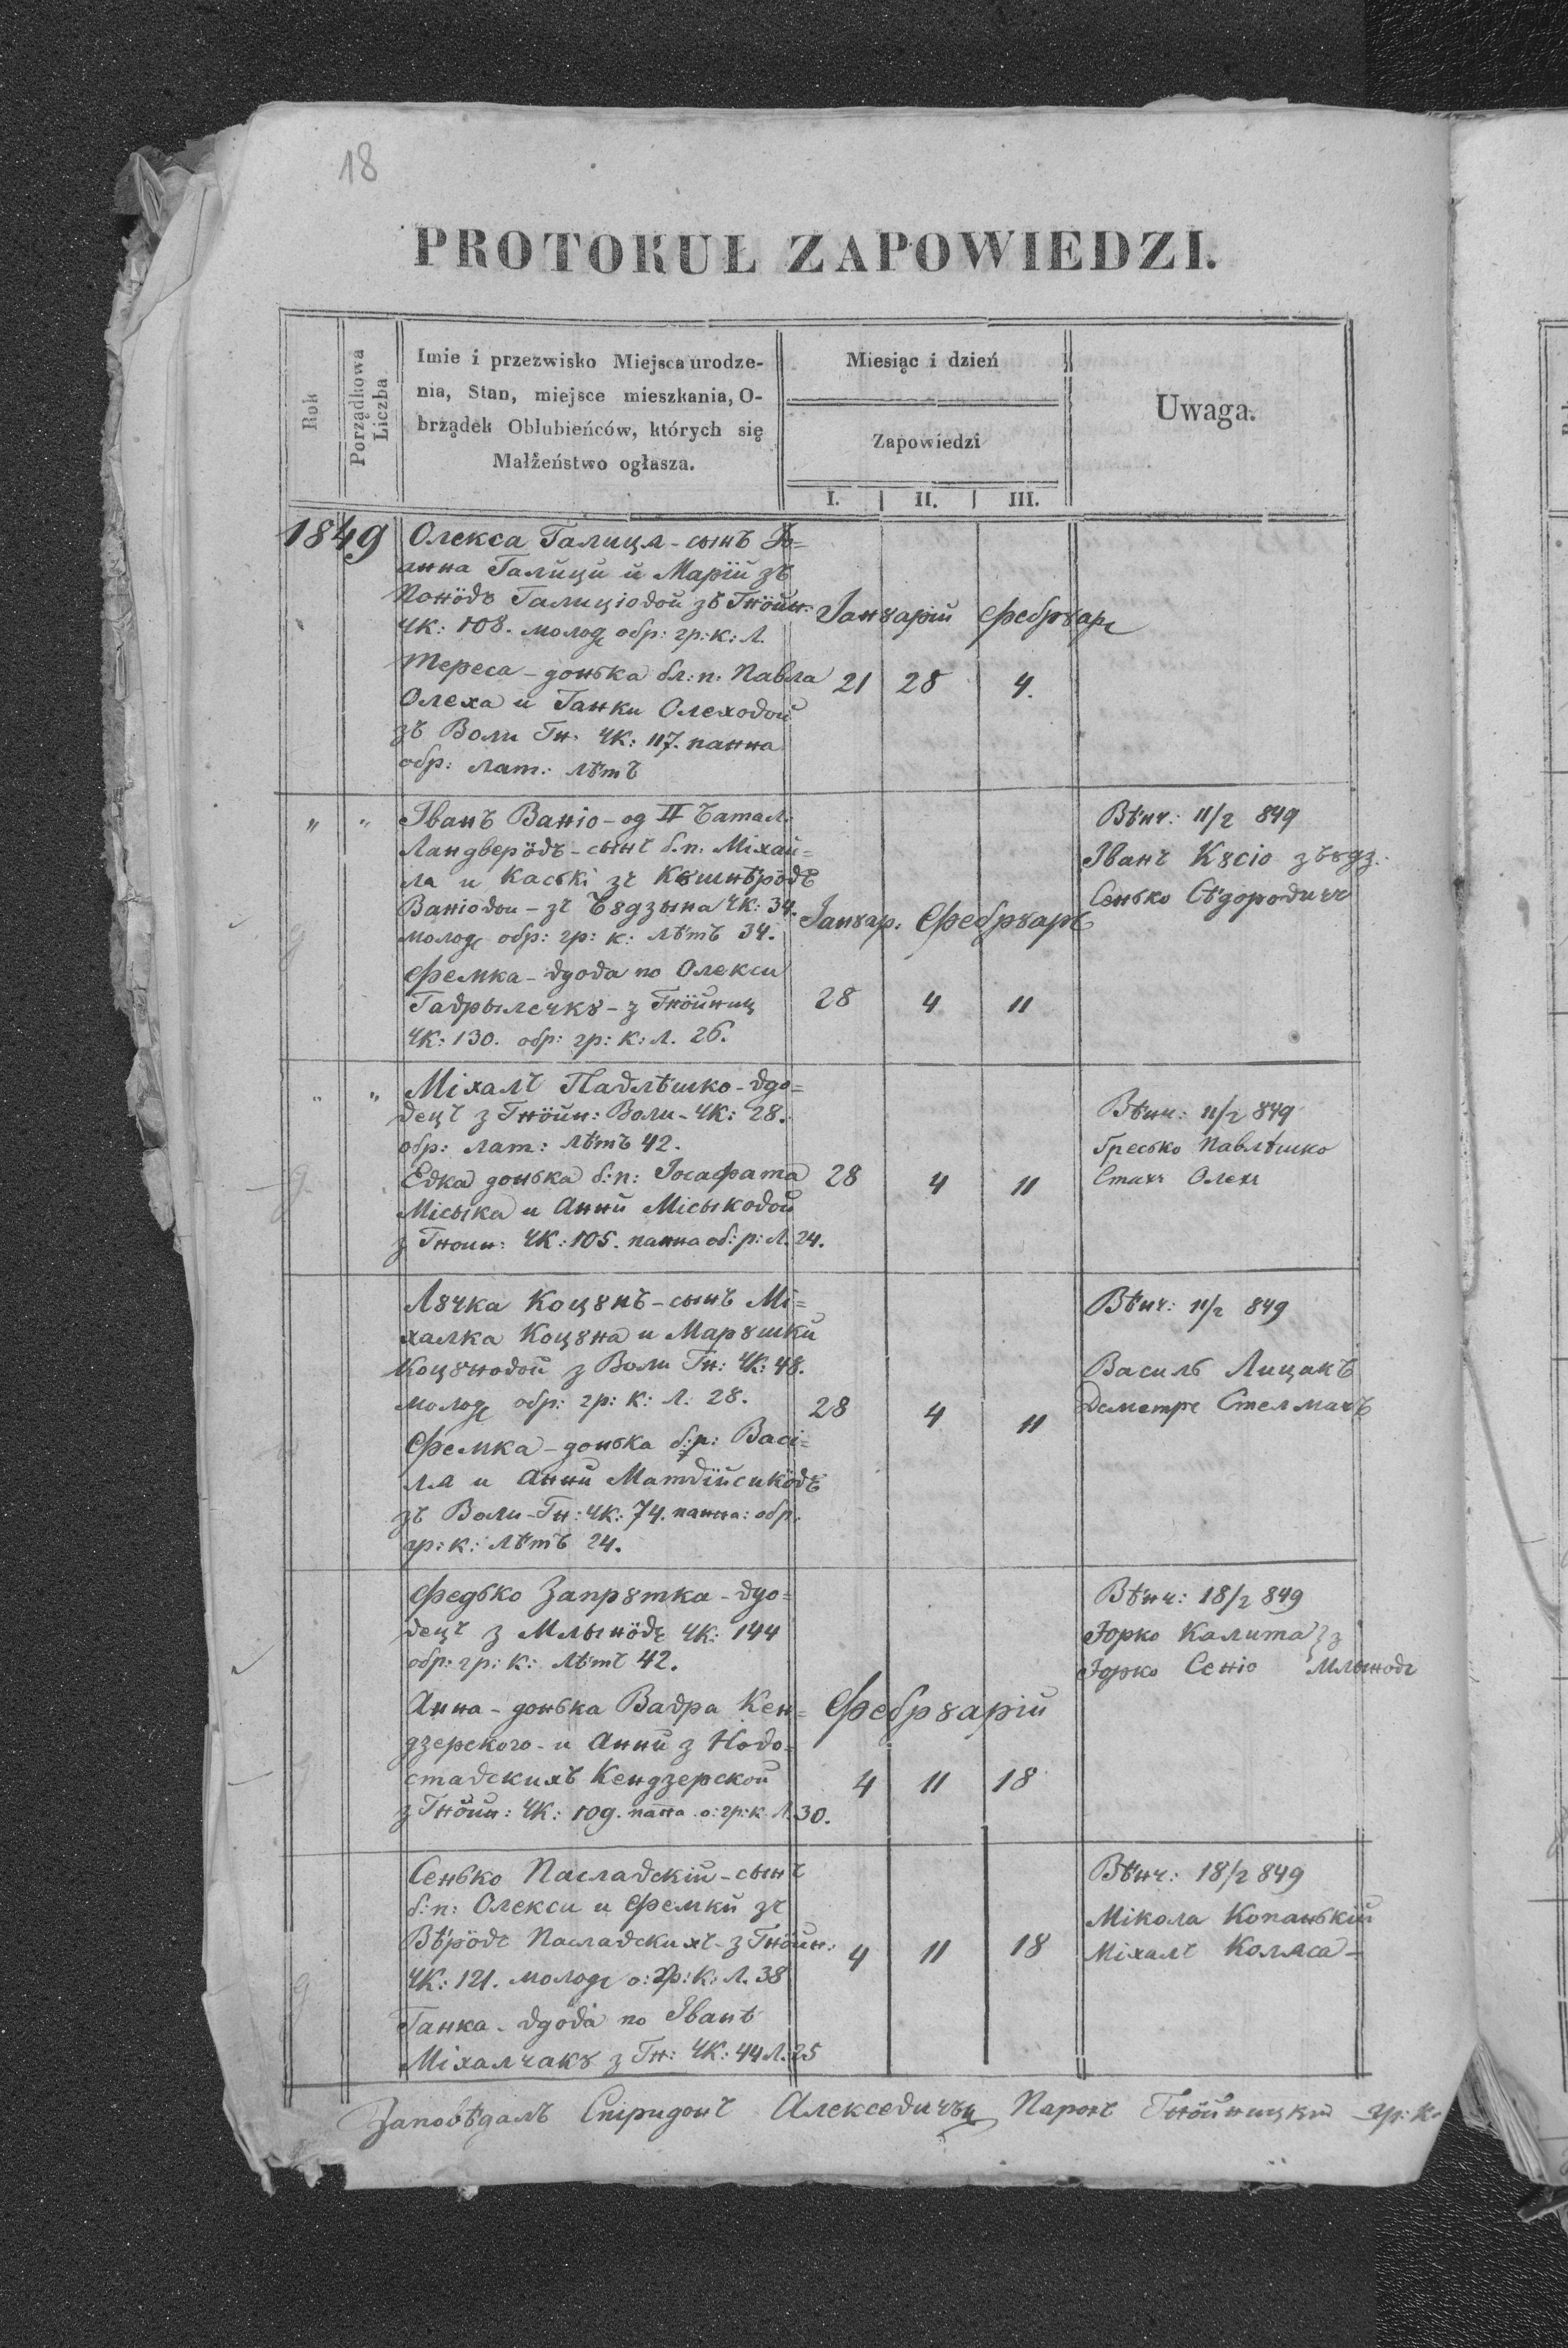 18
PROTOKUŁ ZAPOWIEDZI.
Rok
Porządkowa
Liczba
Imie i przezwisko Miejsca urodze-
nia, Stan, miejsce mieszkania, O-
brządek Oblubieńców, których się
Małżeństwo ogłasza.
Miesiąc i dzień
Zapowiedzi
I. II. III.
Uwaga.
1849
Олекса Галиця - сынъ Іо=
анна Галици и Маріи зъ
Галиціовой зъ Гнойн:
ЧК: 108. молод обр: гр: к: Л.
Іанꙋарій Фебрꙋар
Тереса - донька бл: п: Павла
Олеха и Ганки Олеховой
зъ Воли Гн. ЧК: 117. панна
обр: лат: лѣтъ
21 28 4.
" "
Іванъ Ваніо - од II батал:
Ландверôвъ - сынъ б.п. Міхаи=
ла и Каські зъ Кꙋшнѣрôвъ
Ваніовои - зъ Бꙋдзына ЧК: 34.
молод обр: гр: к: лѣтъ 34.
Фемка - вдова по Олекси
Гаврылечкꙋ - з Гнойниц
ЧК: 130. обр: гр: к: л. 26.
Іанꙋар. Фебрꙋаръ
28 4 11
Вѣнч: 11/2 849
Іванъ Кꙋсіо з бꙋдз.
Сенько Сѣдоровичъ
" "
Міхалъ Павлѣшко - вдо=
вецъ з Гнойн: Воли - ЧК: 28.
обр: лат: лѣтъ 42.
Евка донька б: п: Іосафата
Місыка и Анни Місыковой
з Гноин: ЧК: 105. панна об: р: Л. 24.
28 4 11
Вѣнч: 11/2 849
Гресько Павлѣшко
Стахъ Олехъ
Лꙋчка Коцꙋнъ - сынъ Мі=
халка Коцꙋна и Марꙋшки
Коцꙋновой з Воли Гн: ЧК: 48.
молод обр: гр: к: Л: 28.
Фемка - донька б: п: Васі=
ля и Анни
зъ Воли - Гн: ЧК: 74. панна: обр.
гр: к: лѣтъ 24.
28 4 11
Вѣнч: 11/2 849
Василь Лицакъ
Деметре Стелмахъ
Федько Запрꙋтка - вдо=
вецъ з Млынôвъ ЧК: 144
обр: гр: к: лѣтъ 42.
Анна - донька Вавра Кен=
дзерского - и Анни з Ново=
ставскихъ Кендзерской
з Гнойн: ЧК: 109. панна о: гр: к Л. 30.
Фебрꙋарій
4 11 18
Вѣнч: 18/2 849
Юрко Калита } з
Юрко Сеніо Млыновъ
Сенько Пасладскій - сынъ
б: п: Олекси и Фемки зъ
Вѣрôвъ Пасладскихъ - з Гнойн:
ЧК: 121. молод о: гр: к: Л. 38
Ганка - вдова по Іванѣ
Міхалчакꙋ з Гн: ЧК: 44 Л: 25
4 11 18
Вѣнч: 18/2 849
Мікола Копанькій
Міхалъ Коляса -
Заповѣдалъ Спиридонъ Парохъ Гнойницкій гр: к.